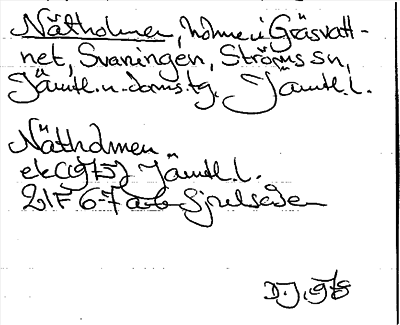 Nätholmen, holme i Gräsvatt-
net, Svaningen, Ströms sn,
Jämtl. n. doms.tg. Jämtl. l.
Nätholmen
ek (1975) Jämtl. l.
21F 6-7 a-b Sjoutsälven
D.J. 1978